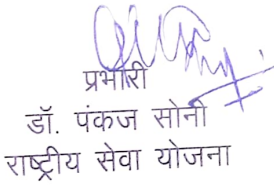 प्रभारी
डॉ. पंकज सोनी
राष्ट्रीय सेवा योजना